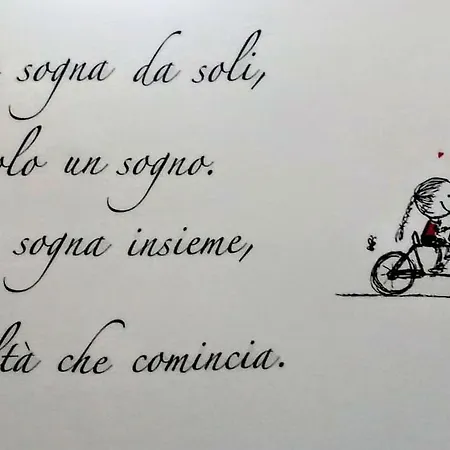 sogna da soli,
olo un sogno.
sogna insieme,
ltà che comincia.